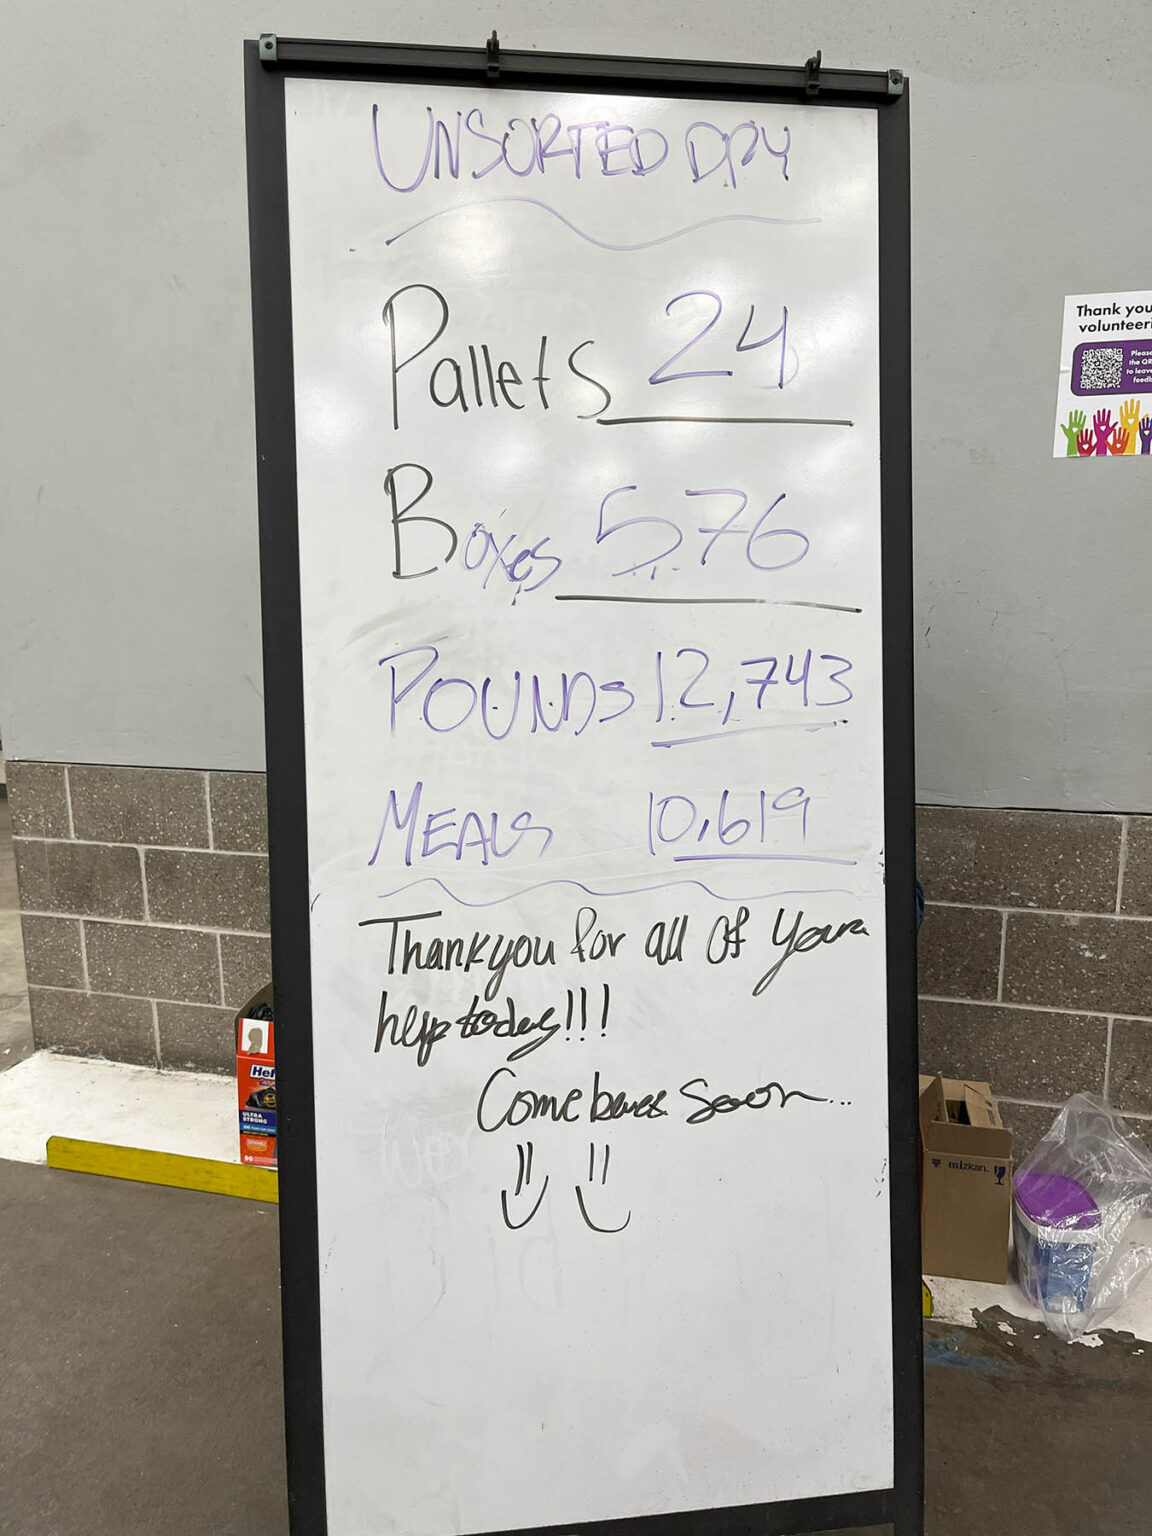 UNSORTED DRY
Pallets 24
Boxes 576
POUNDS 12,743
MEALS 10,619
Thank you for all of your
help today!!!
Come back soon...
Thank you
volunteeri
Please
the QR
to leave
feedb
Hef
ULTRA
STRONG
90
mizkan.